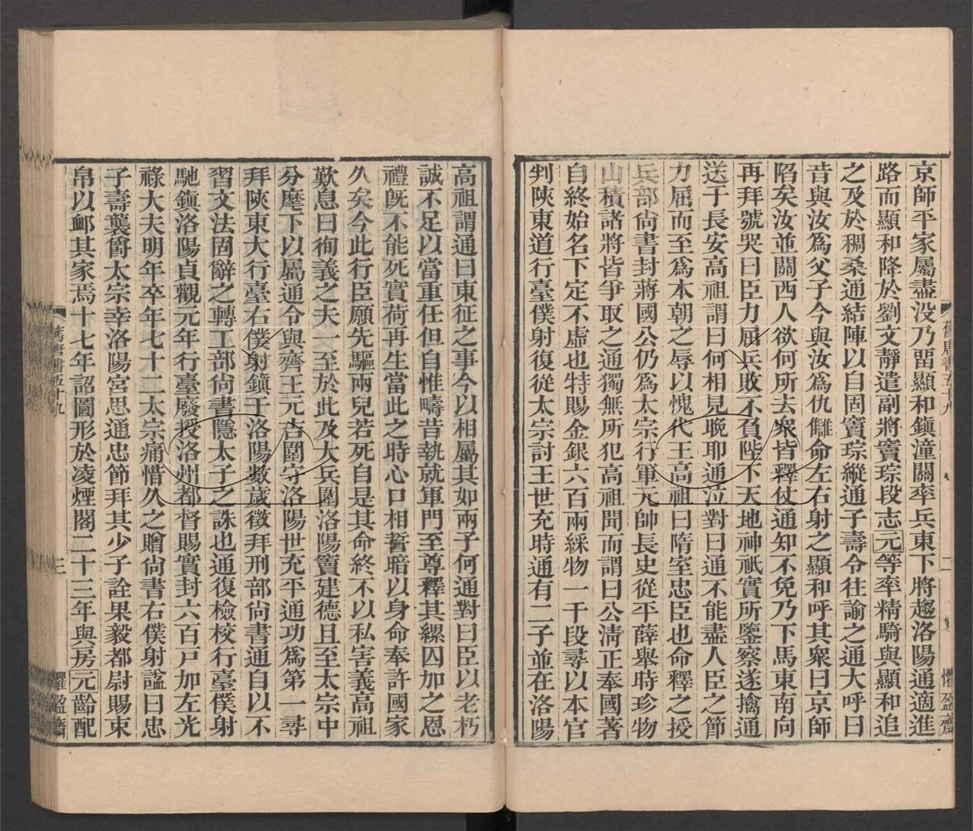 京師平家屬盡没乃畱顯和鎮潼關率兵東下將趨洛陽通適進
路而顯和降於劉文靜遣副將竇琮段志元等率精騎與顯和追
之及於稠桑通結陣以自固竇琮縱通子壽令往諭之通大呼曰
昔與汝爲父子今與汝爲仇讎命左右射之顯和呼其衆曰京師
陷矣汝並關西人欲何所去衆皆釋仗通知不免乃下馬東南向
再拜號哭曰臣力屈兵敗不負陛下天地神祇實所鑒察遂擒通
送于長安高祖謂曰何相見晚耶通泣對曰通不能盡人臣之節
力屈而至爲本朝之辱以愧代王高祖曰隋室忠臣也命釋之授
兵部尚書封蔣國公仍爲太宗行軍元帥長史從平薛舉時珍物
山積諸將皆爭取之通獨無所犯高祖聞而謂曰公淸正奉國著
自終始名下定不虛也特賜金銀六百兩綵物一千段尋以本官
判陝東道行臺僕射復從太宗討王世充時通有二子並在洛陽
舊唐書五十九
二
懼盈齋
高祖謂通曰東征之事今以相屬其如兩子何通對曰臣以老朽
誠不足以當重任但自惟疇昔執就軍門至尊釋其縲囚加之恩
禮旣不能死實荷再生當此之時心口相誓暗以身命奉許國家
久矣今此行臣願先驅兩兒若死自是其命終不以私害義高祖
歎息曰徇義之夫一至於此及大兵圍洛陽竇建德且至太宗中
分麾下以屬通令與齊王元吉圍守洛陽世充平通功爲第一尋
拜陝東大行臺右僕射鎮于洛陽數歲徵拜刑部尚書通自以不
習文法固辭之轉工部尚書隱太子之誅也通復檢校行臺僕射
馳鎮洛陽貞觀元年行臺廢授洛州都督賜實封六百戸加左光
祿大夫明年卒年七十二太宗痛惜久之贈尚書右僕射諡曰忠
子壽襲爵太宗幸洛陽宮思通忠節拜其少子詮果毅都尉賜束
帛以卹其家焉十七年詔圖形於凌煙閣二十三年與房元齡配
舊唐書五十九
三
懼盈齋